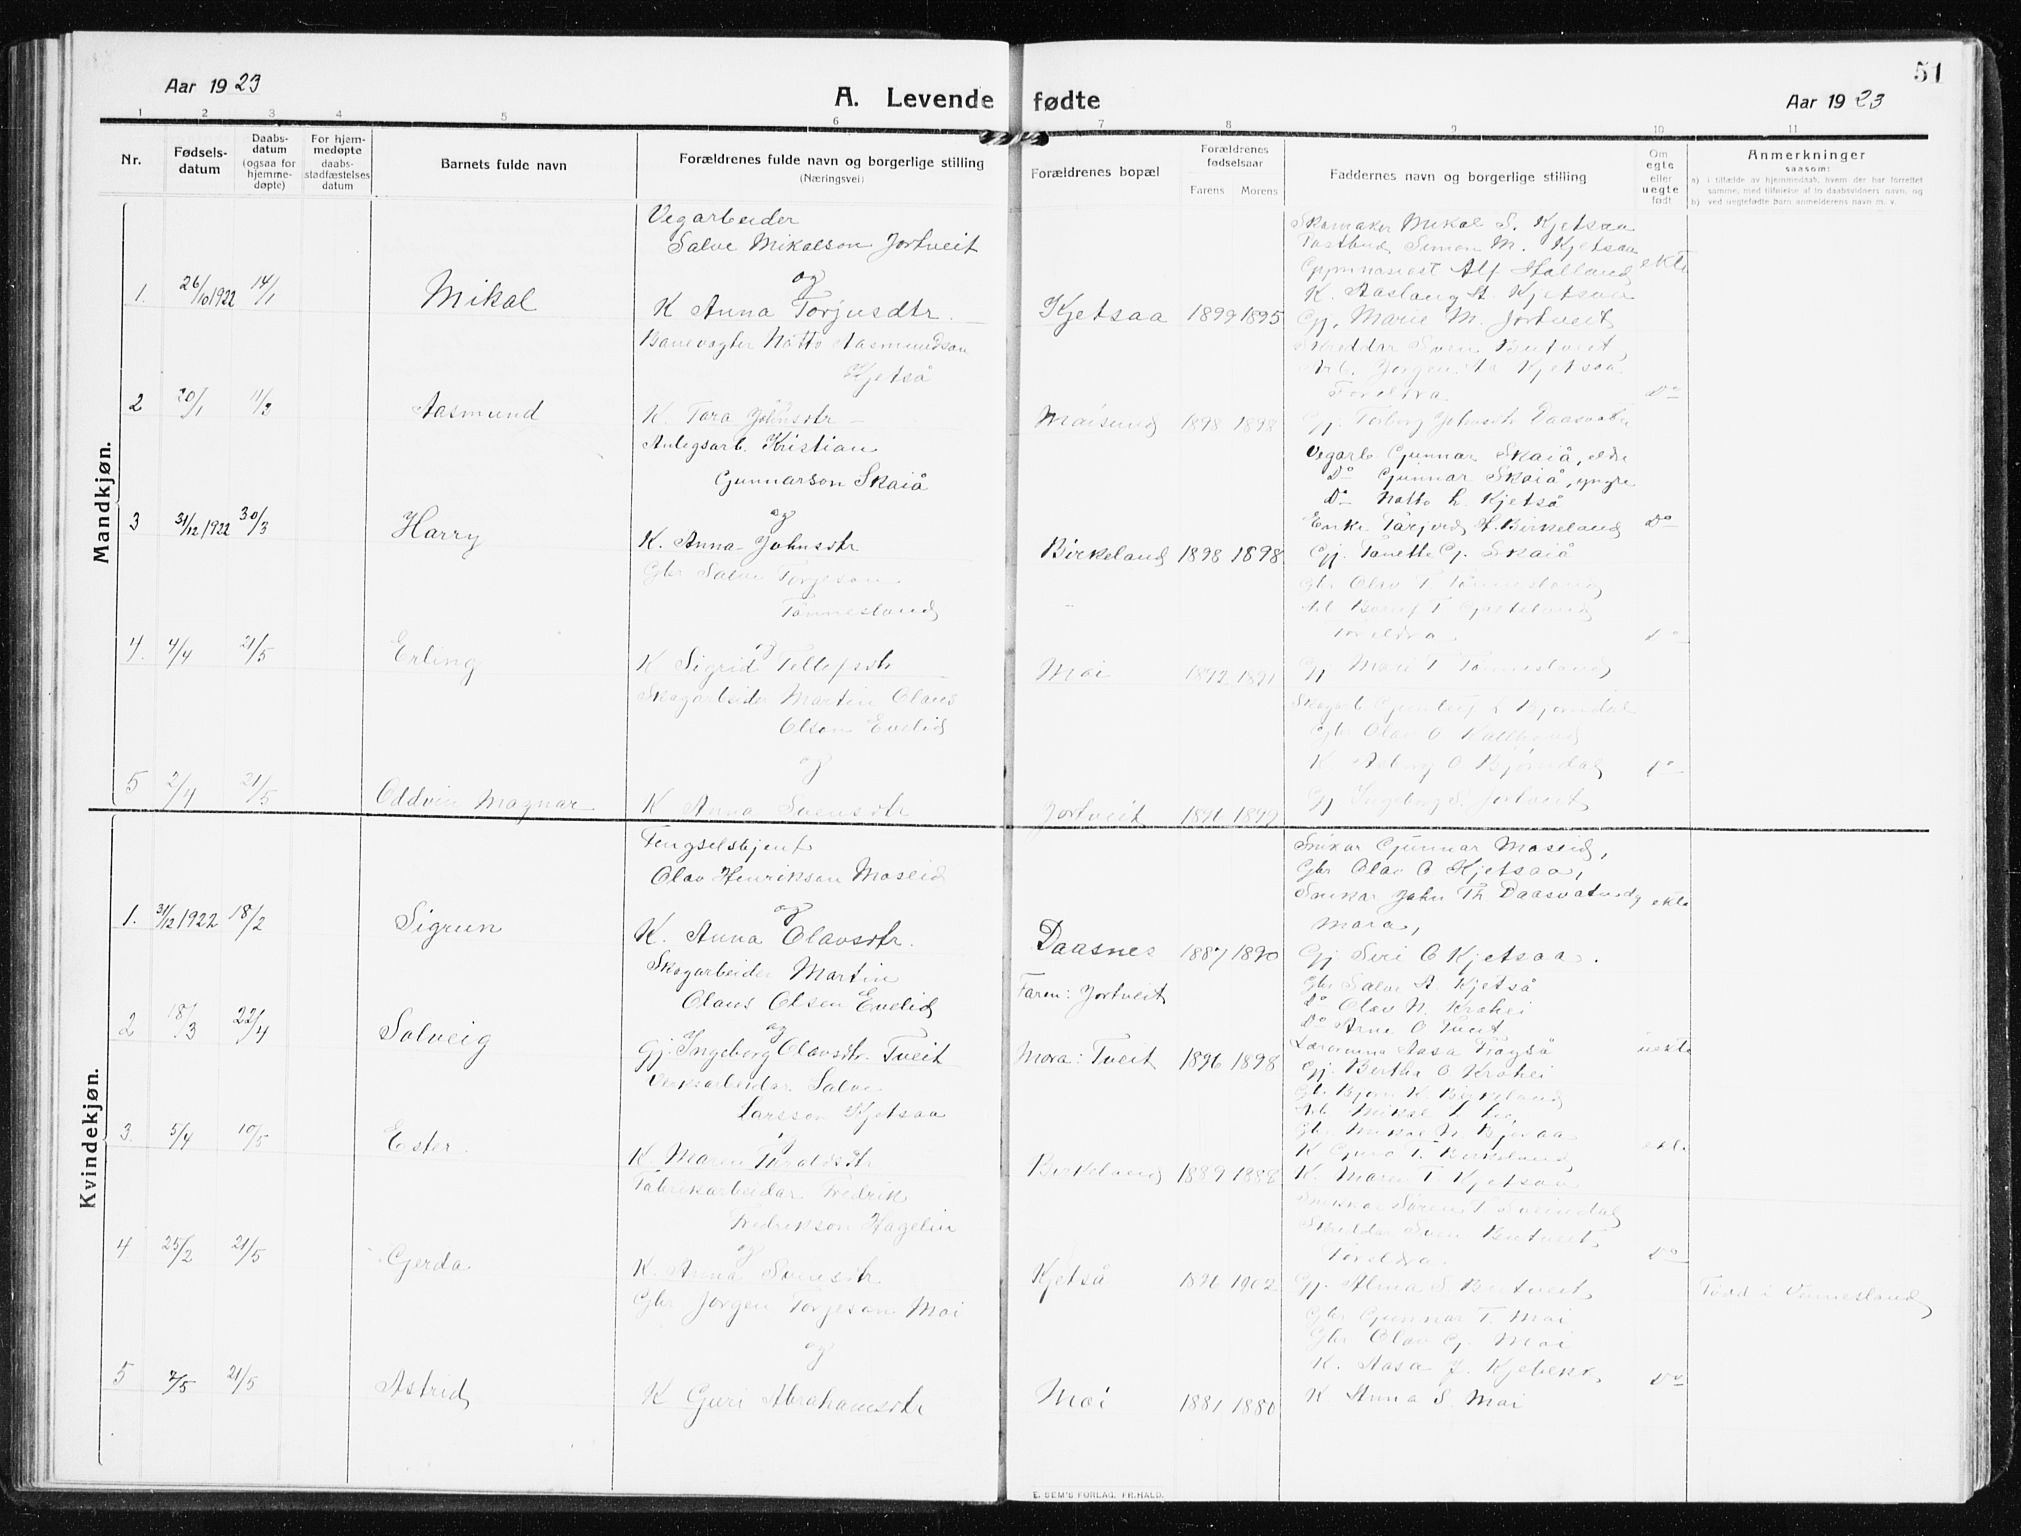 51
Aar 1923
A. Levende fødte
Aar 1923
1 2 3 4 5 6 7 8 9 10 11
Nr.
Fødsels-
datum
Daabs-
datum
(ogsaa for
hjemme-
døpte)
For hjem-
medøpte
daabs-
stadfæstelses
datum
Barnets fulde navn
Forældrenes fulde navn og borgerlige stilling
(Næringsvei)
Forældrenes bopæl
Forældrenes
fødselsaar
Farens Morens
Faddernes navn og borgerlige stilling
Om
egte
eller
uegte
født
Anmerkninger
saasom:
a) i tilfælde av hjemmedaab, hvem der har forrettet
samme, med tilføielse af to daabsvidners navn, og
b) ved uegtefødte barn anmelderens navn m. v.
Mandkjøn.
1. 26/10 1922 14/1
Mikal
Vegarbeider
Salve Mikalson Jortveit
og
K Anna Torjusdtr.
Kjetsaa 1899 1895
Skomaker Mikal S. Kjetsaa
Postbud Simon M. Kjetsaa
Gymnasiast AlfHolland
K. Aaslaug A. Kjetsaa
Gj. Marie M. Jortveit
ekte
2 20/1 11/3
Aasmund
Banevogter Notto Aasmundson
Kjetså
og
K. Tora Johnsdtr
Moisund 1898 1898
Skreddar Sven Bentveit,
Arb. Jørgen Aa Kjetsaa
Foreldra
Gj. Torborg Johnsdtr Daasvatn
Do
3 31/12 1922 30/3
Harry
Anlegsarb. Kristian
Gunnarson Skaiå
og
K. Anna Johnsdtr
Birkeland 1898 1898
Vegarb. Gunnar Skaiå, eldre
Do Gunnar Skaiå, yngre
Do Notto L. Kjetså
Enke Tarjerd H. Birkeland
Gj. Tanette G. Skaiå
Do
4. 4/4 21/5
Erling
Gbr Salve Torjeson
Tønnesland
og
K Sigrid Tellefsdtr
Moi 1892 1891
Gbr Olav T Tønnesland
Foreldra
Gj Mari T Tønnesland
Do
5 2/4 21/5
Oddvin Magnar
Skogarbeider Martin Olaus
Olson Evelid
og
K Anna Svensdtr
Jortveit
Gbr Olav O
K Asborg O Bjørndal
Gj Ingeborg S. Jortveit
Do
Kvindekjøn.
1. 31/12 1922 18/2
Sigrun
Fengselsbjent
Olav Henrikson Moseid
og
K. Anna Olavsdtr.
Daasnes 1887 1890
Snikar Gunnar Moseid,
Gbr Olav O Kjetsaa,
Snikar John Th. Daasvatn og
Mora,
Gj Siri O Kjetsaa.
ekte
2 18/3 22/4
Solveig
Skogarbeider Martin
Olaus Olsen Evelid
og
Gj. Ingeborg Olavsdtr. Tveit
Faren: Jortveit
Mora: Tveit 1896 1898
Gbr Salve A Kjetså
Do Olav N. Krohei
Do Arne O Tveit
Lærerinna Aasa Frøyså
Gj. Bertha O Krohei
uekte
3. 5/4 10/5
Ester
Verksarbeidar Salve
Larsson Kjetsaa
og
K Maren Taraldsdtr
Birkeland 1889 1888
Gb. Bjørn K. Birkeland
Arb Mikal
Gbr Mikal N. Bjoraa
K Guro T. Birkeland
K. Maren T Kjetsaa
ekte
4 25/2 21/5
Gerda
Fabrikarbeidar Fredrik
Fredrikson Hagelin
og
K. Anna Svensdtr
Kjetså 1896 1902
Søren T Solendal
Skreddar Sven Bentveit
Foreldra.
Gj. Alma S. Bentveit
Do
Fødd i Vennesland
5 7/5 21/5
Astrid
Gbr Jorgen Torjeson Moi
og
K Guri Abrahamsdtr
Moi 1881 1880
Gbr Gunnar T. Moi
Gbr Olav G. Moi
K. Aasa J. Kjebekk
K Anna S. Moi
Do
E. SEM'S FORLAG, FR.HALD.